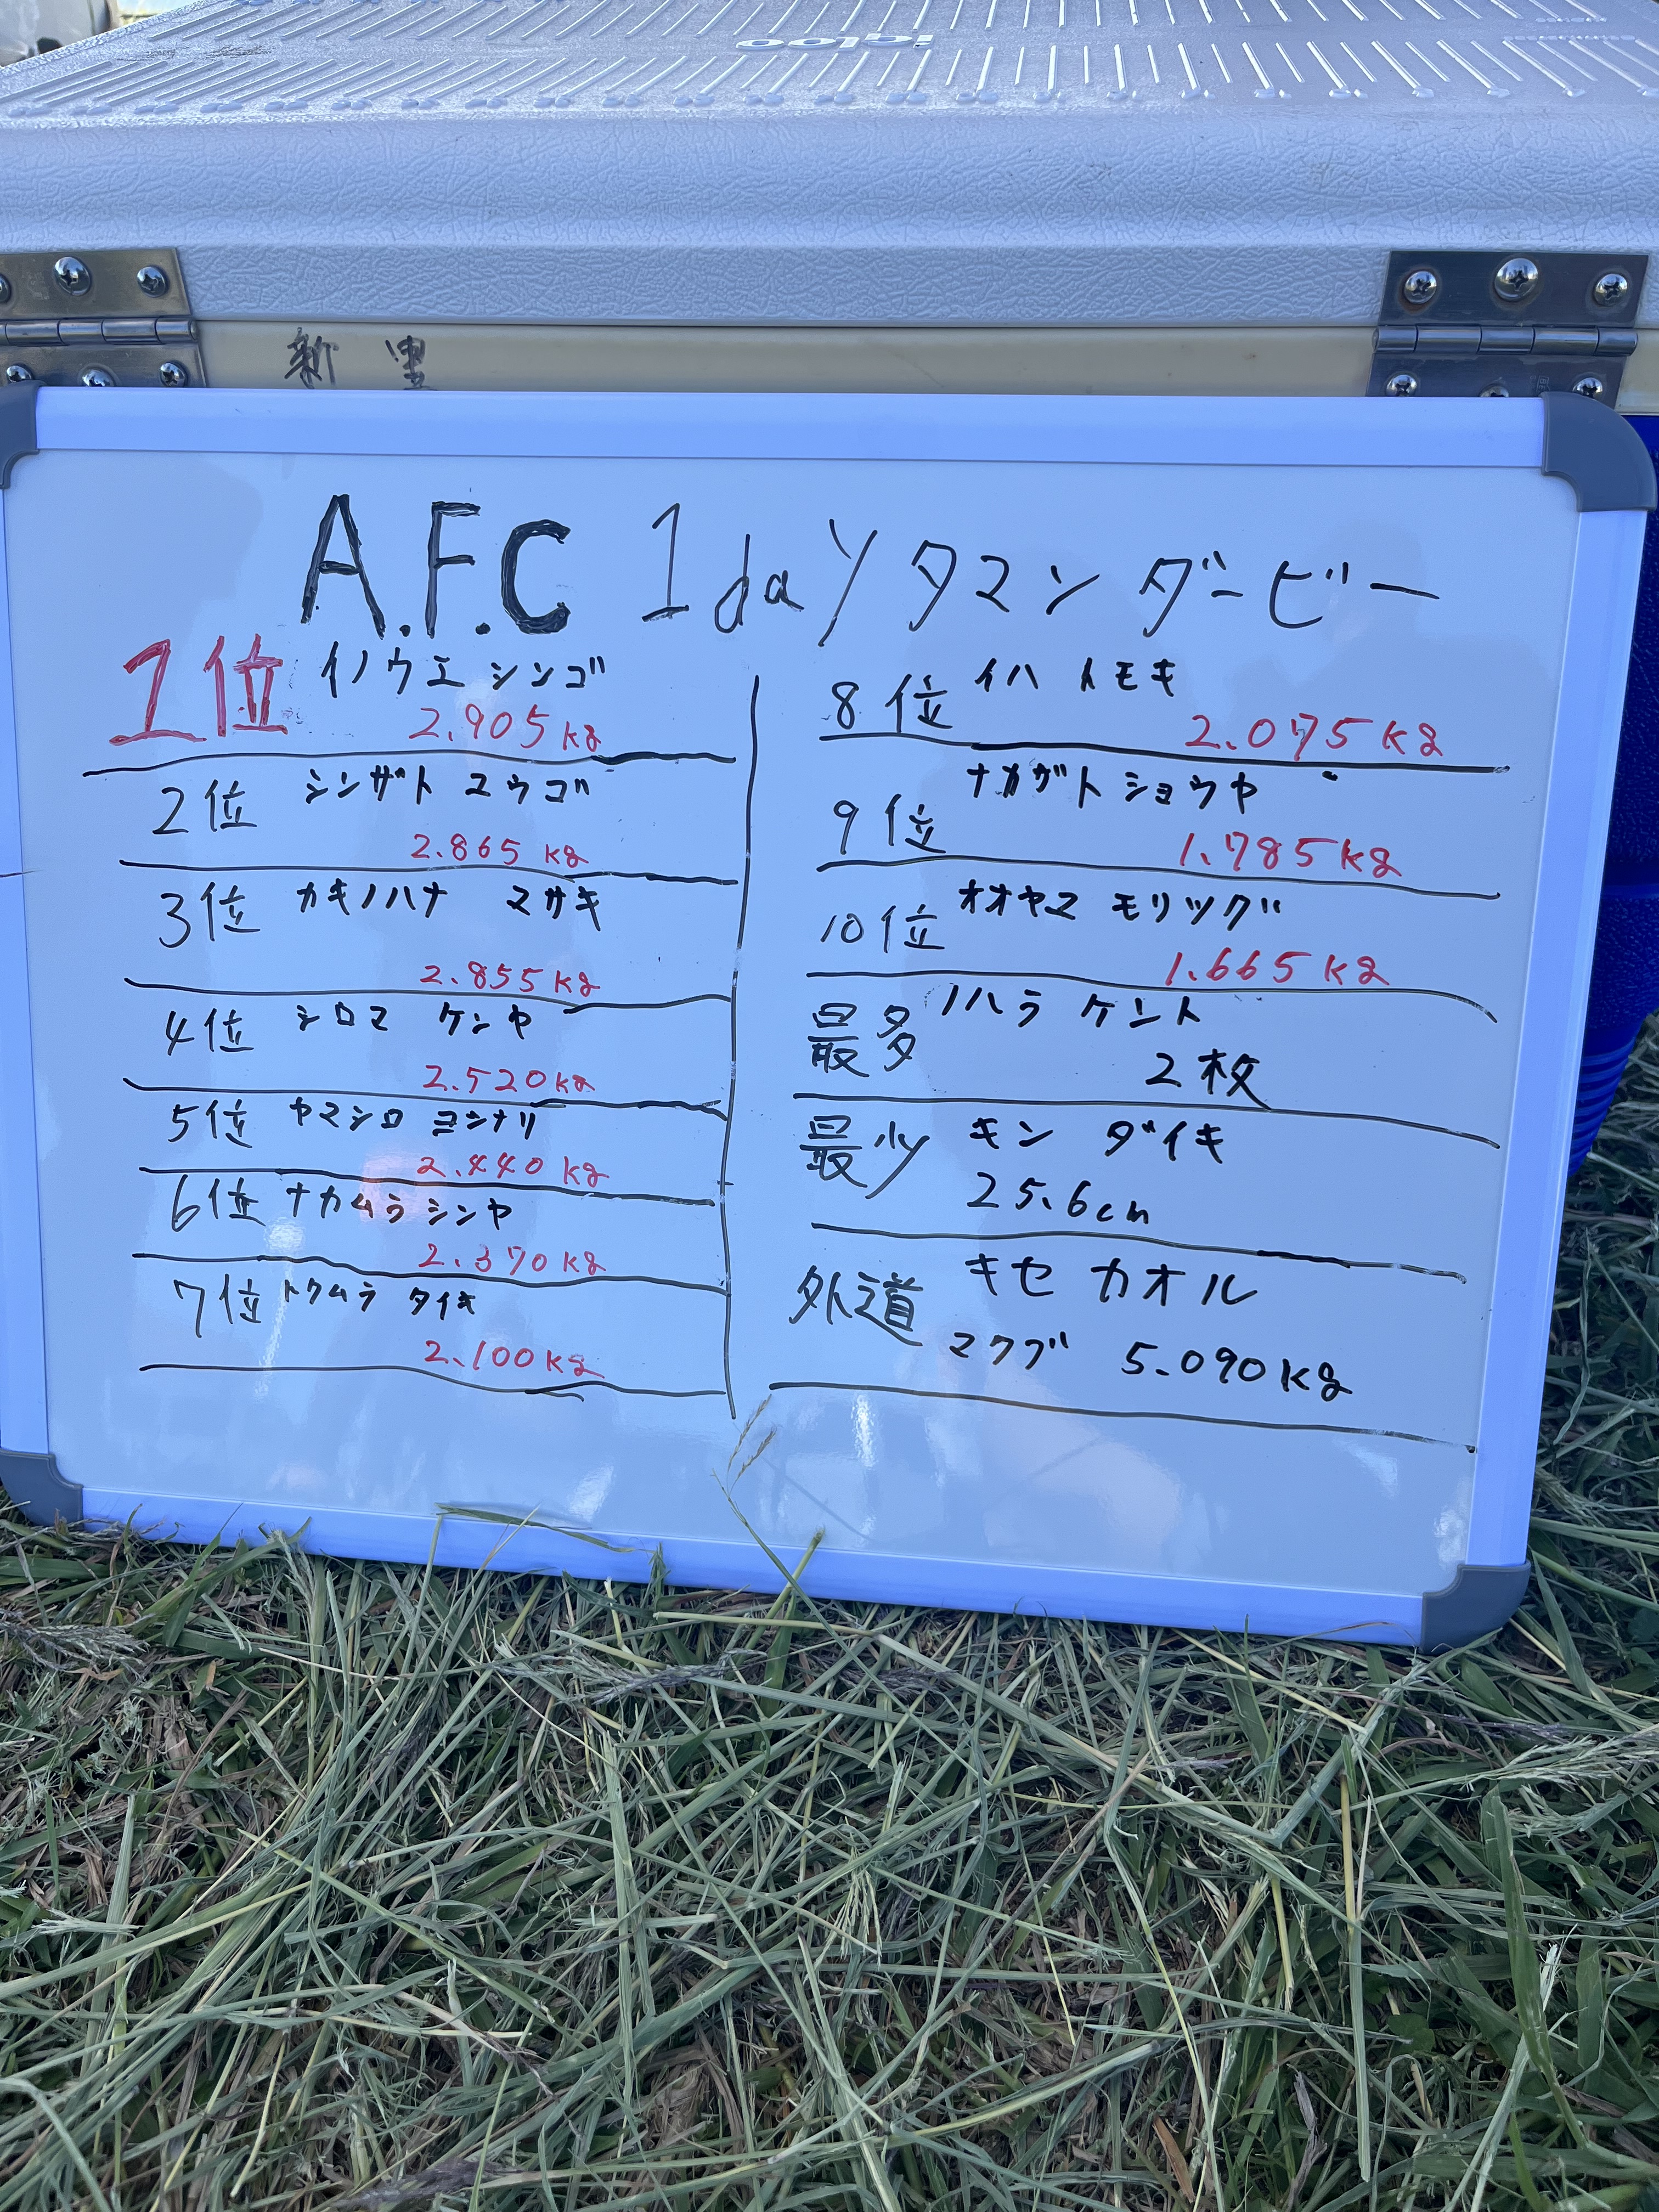 igloo
新里
A.F.C 1day タマンダービー
1位 イノウエ シンゴ
2.905kg
2位 シンザト ユウゴ
2.865kg
3位 カキノハナ マサキ
2.855kg
4位 シロマ ケンヤ
2.520kg
5位 ヤマシロ ヨシナリ
2.440kg
6位 ナカムラ シンヤ
2.370kg
7位 トクムラ タイキ
2.100kg
8位 イハ トモキ
2.075kg
9位 ナカザト ショウヤ
1.785kg
10位 オオヤマ モリツグ
1.665kg
最多 ノハラ ケント
2枚
最少 キン ダイキ
25.6cm
外道 キセ カオル
マクブ 5.090kg